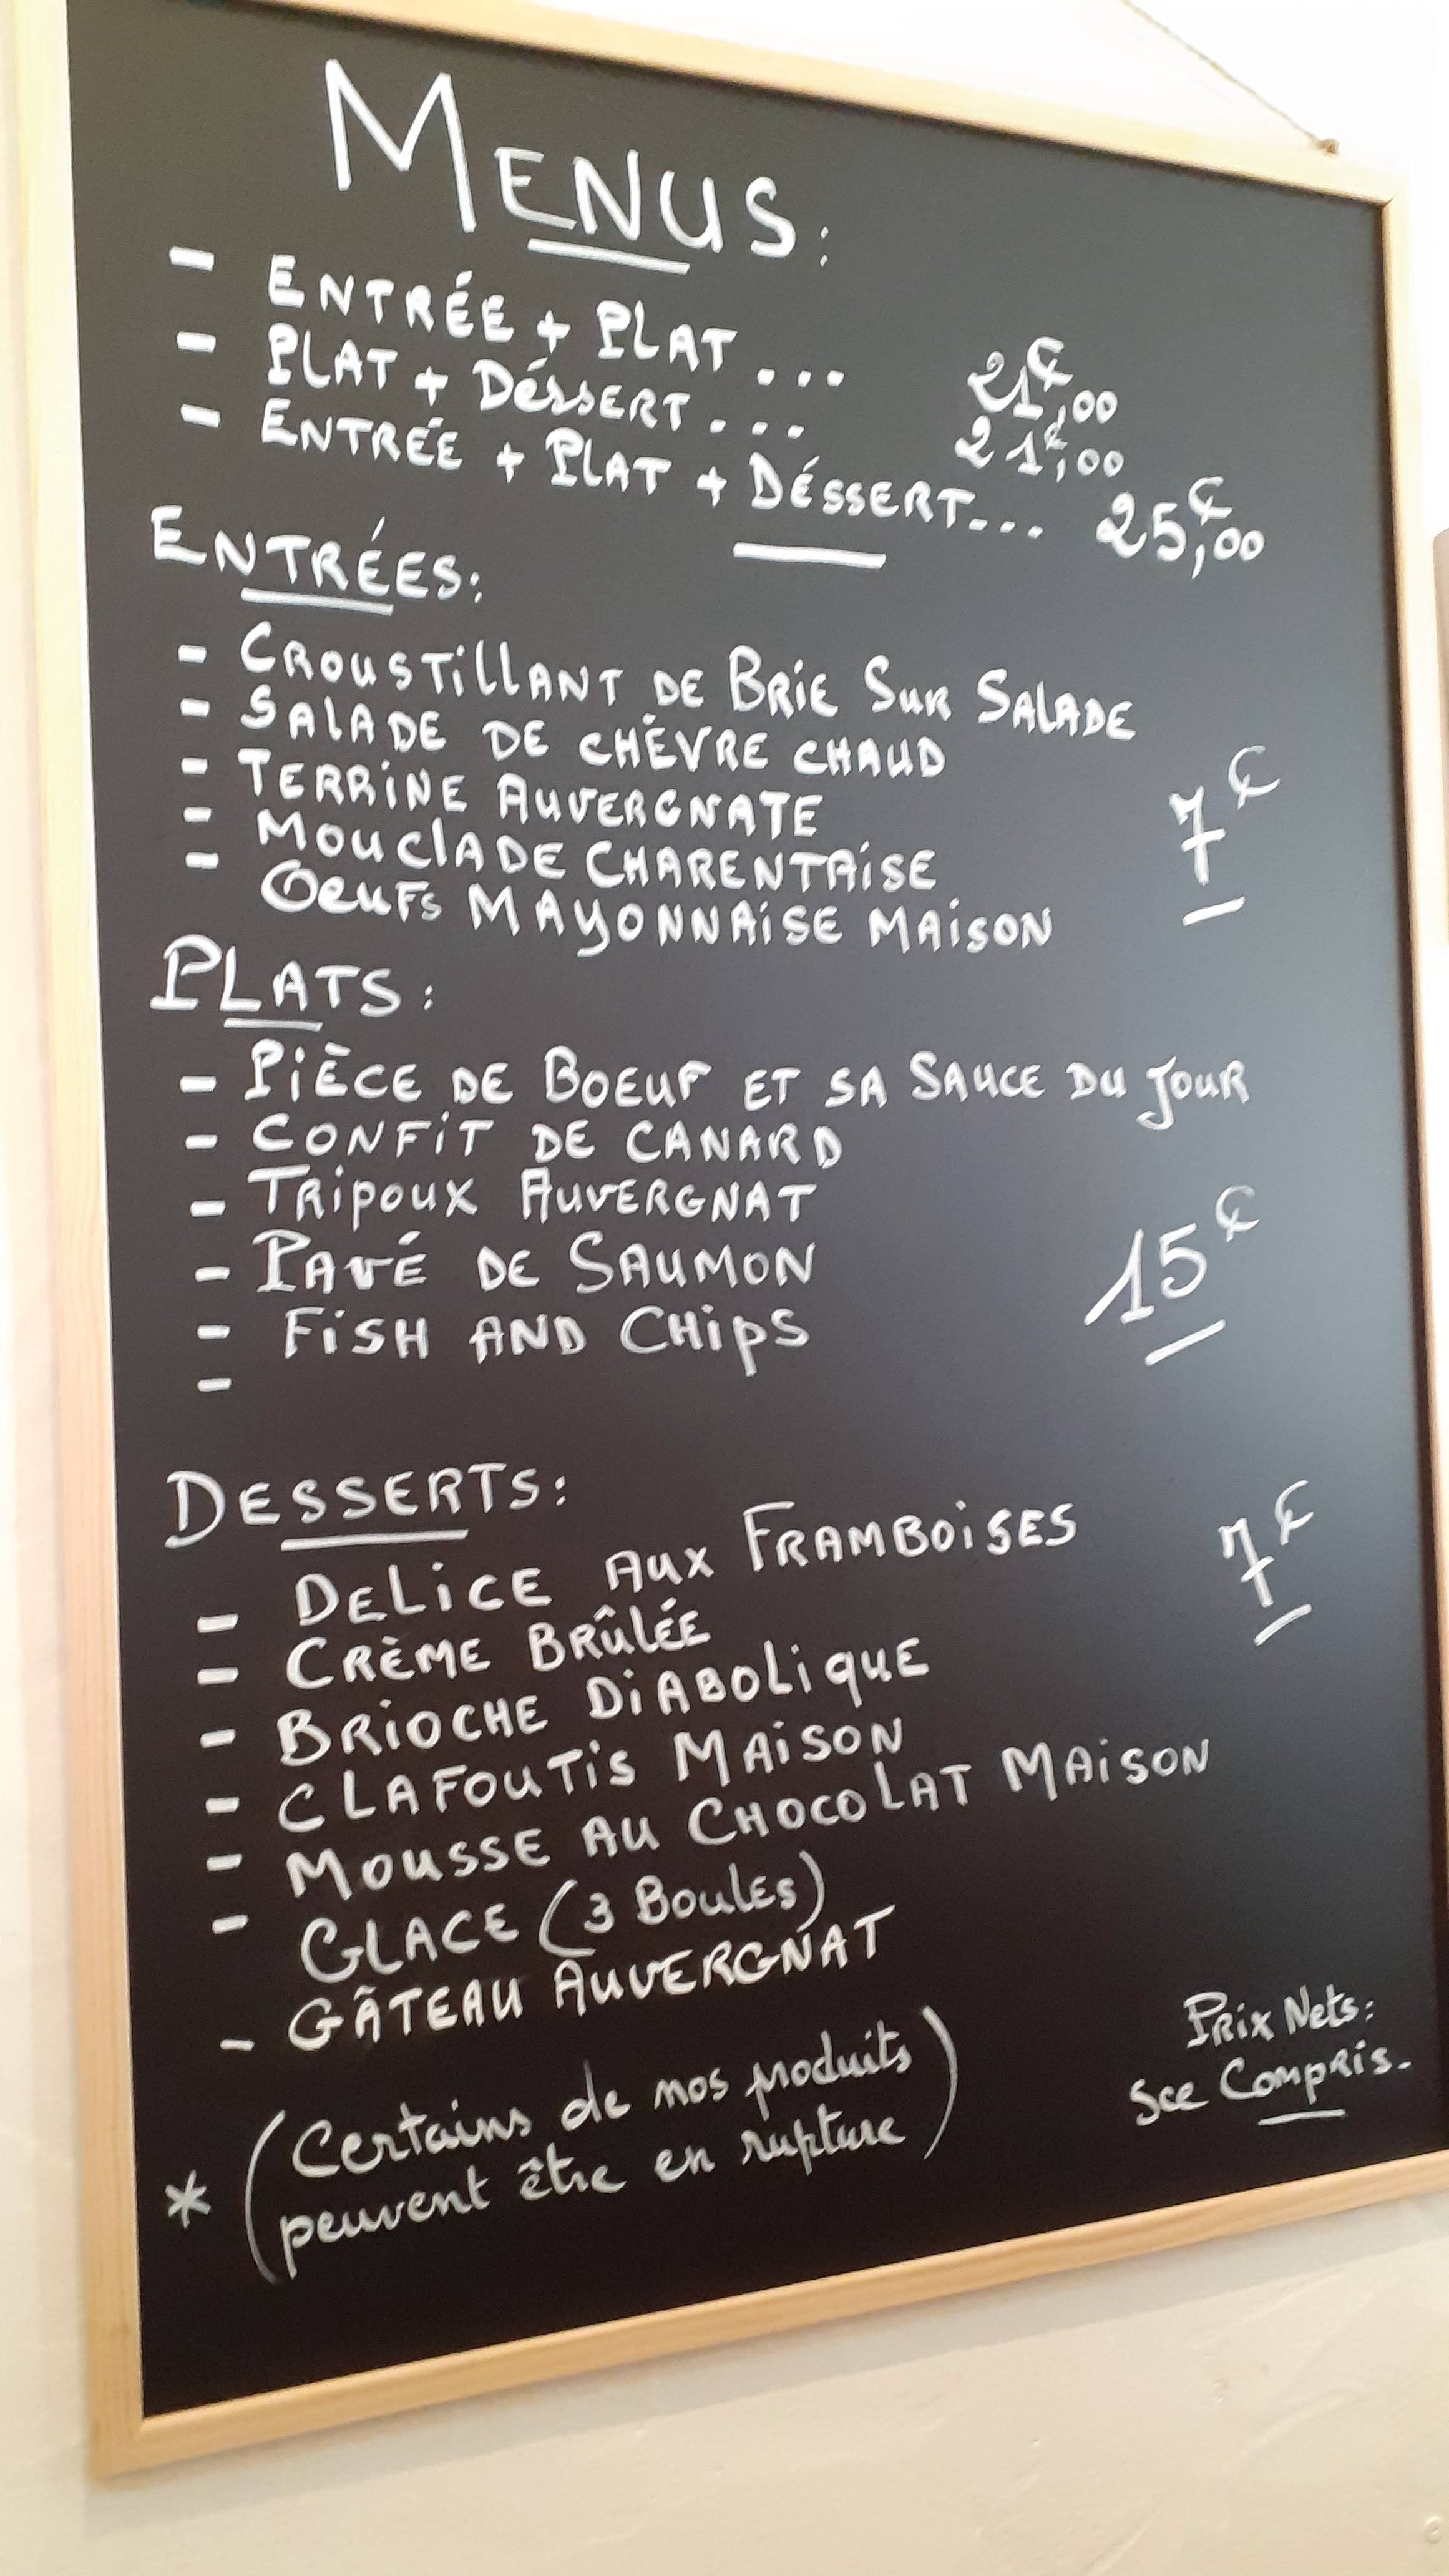 MENUS:
- ENTRÉE + PLAT... 21€,00
- PLAT + DÉSSERT... 21€,00
- ENTRÉE + PLAT + DÉSSERT... 25€,00
ENTRÉES:
- CROUSTILLANT DE BRIE SUR SALADE
- SALADE DE CHÈVRE CHAUD
- TERRINE AUVERGNATE
- MOUCLADE CHARENTAISE
- OEUFS MAYONNAISE MAISON
7€
PLATS:
- PIÈCE DE BOEUF ET SA SAUCE DU JOUR
- CONFIT DE CANARD
- TRIPOUX AUVERGNAT
- PAVÉ DE SAUMON
- FISH AND CHIPS
-
15€
DESSERTS:
- DELICE AUX FRAMBOISES
- CRÈME BRÛLÉE
- BRIOCHE DIABOLIQUE
- CLAFOUTIS MAISON
- MOUSSE AU CHOCOLAT MAISON
- GLACE (3 BOULES)
- GÂTEAU AUVERGNAT
7€
* (Certains de nos produits
peuvent être en rupture)
PRIX NETS:
Sce COMPRIS.